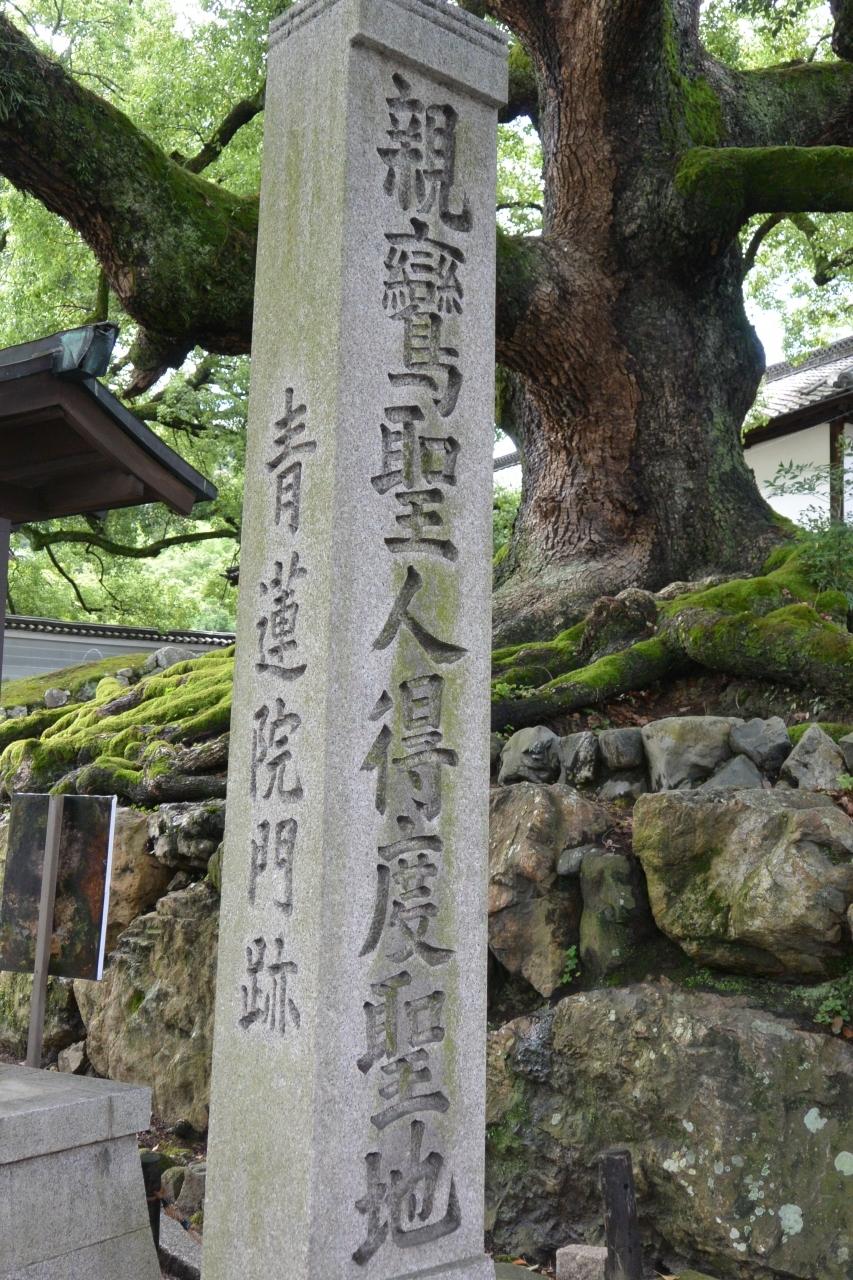 親鸞聖人得度聖地
青蓮院門跡